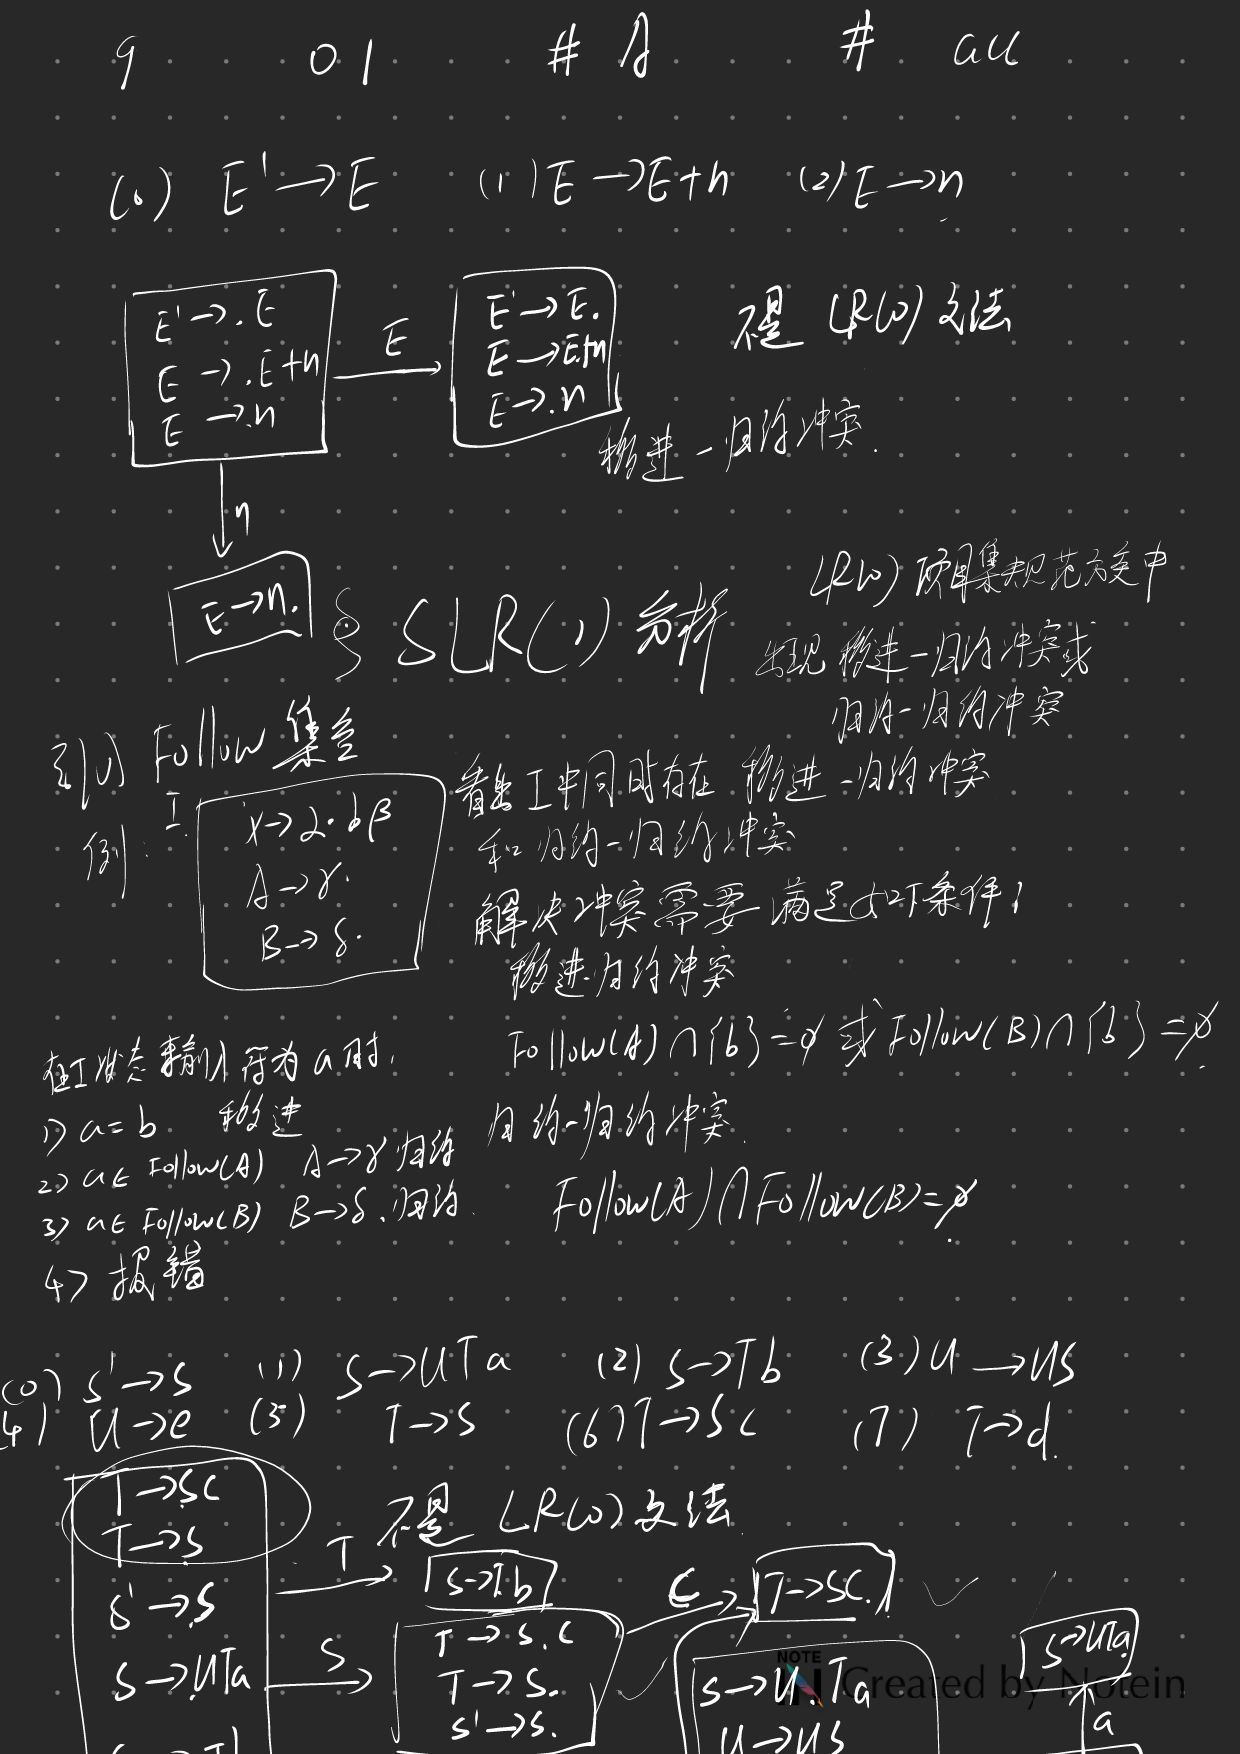 9 01 # A # au
(0) E'→E (1) E→E+n (2) E→n
E'→.E
E→.E+n
E→.n
E
E'→E.
E→E.+n
E→.n
不是 LR(0) 文法
移进-归约冲突.
n
E→n.
SLR(1) 分析
LR(0) 项目集规范族中
出现 移进-归约冲突或
归约-归约冲突
引入 Follow 集合
例: I.
X→α.bβ
A→γ.
B→δ.
看出 I 中同时存在 移进-归约冲突
和归约-归约冲突
解决冲突需要 满足如下条件:
移进归约冲突
Follow(A)∩{b}=∅ 或 Follow(B)∩{b}=∅.
归约-归约冲突.
Follow(A)∩Follow(B)=∅.
在I状态 输入符为 a 时,
1) a=b 移进
2) a∈ Follow(A) A→γ 归约
3) a∈ Follow(B) B→δ. 归约.
4) 报错
(0) S'→S (1) S→UTa (2) S→Tb (3) U→US
(4) U→e (5) T→S (6) T→Sc (7) T→d.
T→.Sc
T→.S
S'→.S
S→.UTa
不是 LR(0) 文法
T
S→T.b
S
T→S.c
T→S.
S'→S.
C
T→SC.
S→U.Ta
U→US
S→UTa
a
NOTE
Created by Notein